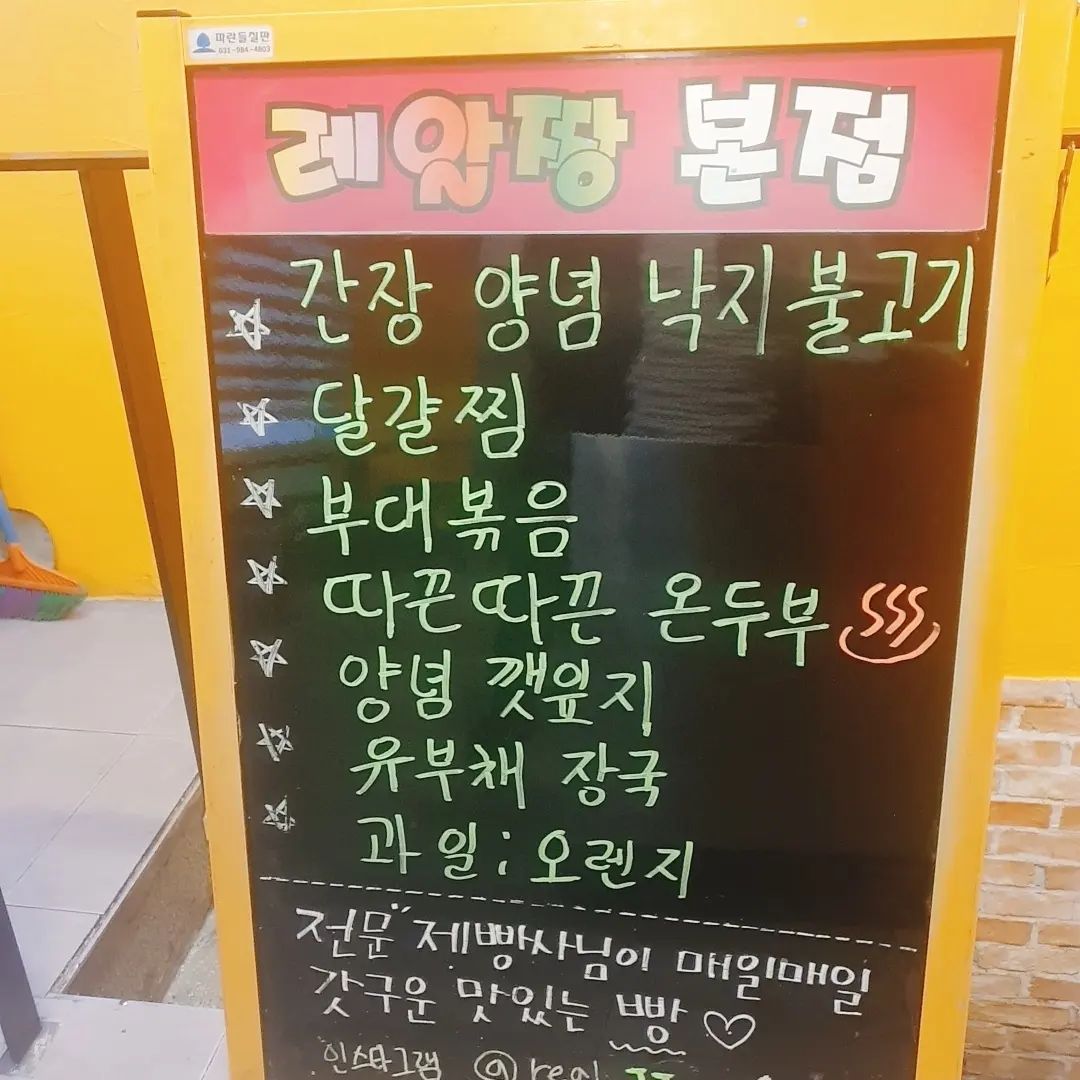 파란들칠판
031-984-4803
레알짱 본점
간장 양념 낙지불고기
달걀찜
부대볶음
따끈따끈 온두부
양념 깻잎지
유부채 장국
과일 : 오렌지
전문 제빵사님이 매일매일
갓구운 맛있는 빵 ♡
인스타그램 @real